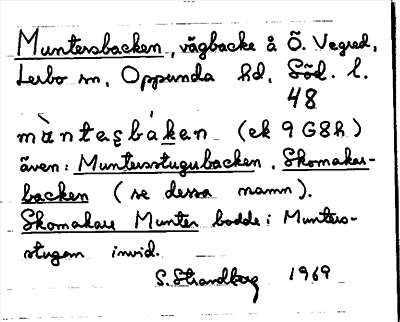 Muntersbacken, vägbacke å Ö. Vegred,
Lerbo sn, Oppunda hd, Söd. l.
48
mùntaʂbákan (ek 9G8h)
även: Muntersstugubacken, Skomakar-
backen (se dessa namn).
Skomakare Munter bodde i Munters-
stugan invid.
S. Strandberg 1969